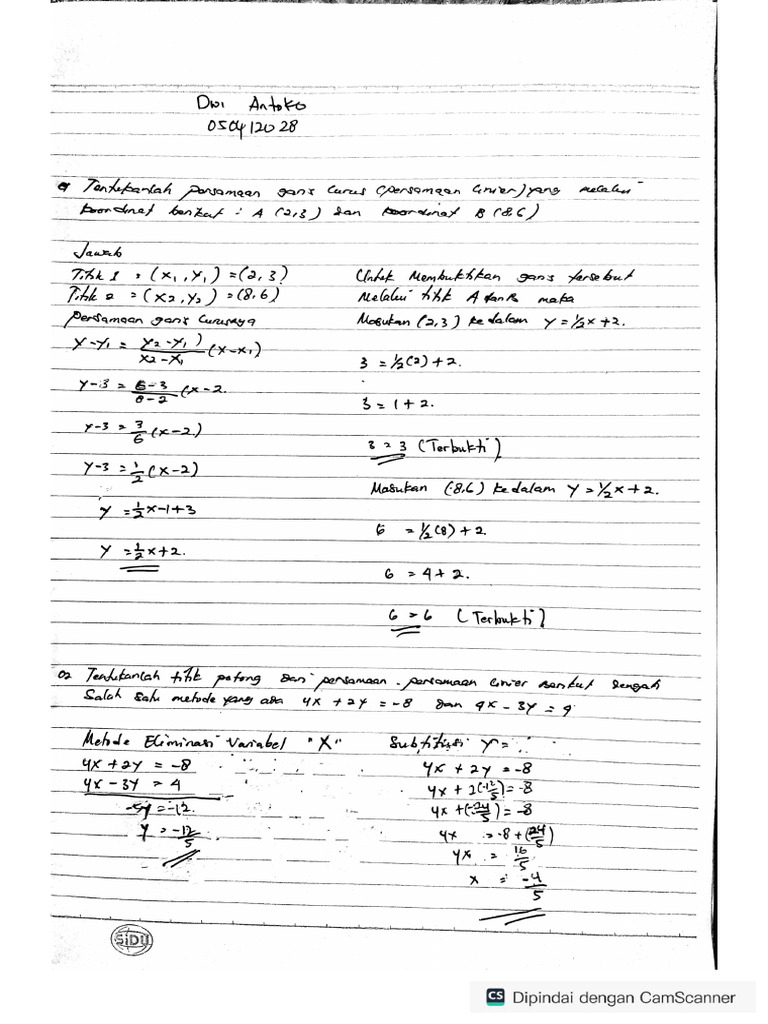 Dwi Antoko
050412028
01 Tentukanlah persamaan garis Lurus (persamaan Linier) yang melalui
koordinat berikut : A (2,3) dan koordinat B (8,6)
Jawab
Titik 1 = (x₁, y₁) = (2,3)
Titik 2 = (x₂, y₂) = (8,6)
persamaan garis Lurusnya
y-y₁ = (y₂-y₁)/(x₂-x₁) (x-x₁)
y-3 = (6-3)/(8-2) (x-2
y-3 = 3/6 (x-2)
y-3 = 1/2 (x-2)
y = 1/2x-1+3
y = 1/2x+2.
Untuk Membuktikan garis tersebut
Melalui titik A dan B maka
Masukan (2,3) ke dalam y=1/2x+2.
3 = 1/2(2)+2.
3 = 1+2.
3 = 3 (Terbukti)
Masukan (8,6) ke dalam y=1/2x+2.
6 = 1/2(8)+2.
6 = 4+2.
6 = 6 (Terbukti)
02 Tentukanlah titik potong dari persamaan-persamaan Linier berikut dengan
Salah satu metode yang ada 4x + 2y = -8 dan 4x - 3y = 4
Metode Eliminasi Variabel "X"
4x + 2y = -8
4x - 3y = 4
-5y = -12
y = -12/5
Subtitusi y =
4x + 2y = -8
4x + 2(-12/5) = -8
4x + (-24/5) = -8
4x = -8 + (24/5)
4x = 16/5
x = -4/5
SiDU
CS Dipindai dengan CamScanner